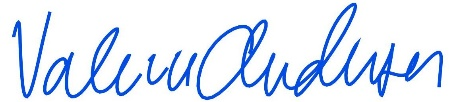 Valerie Andersen